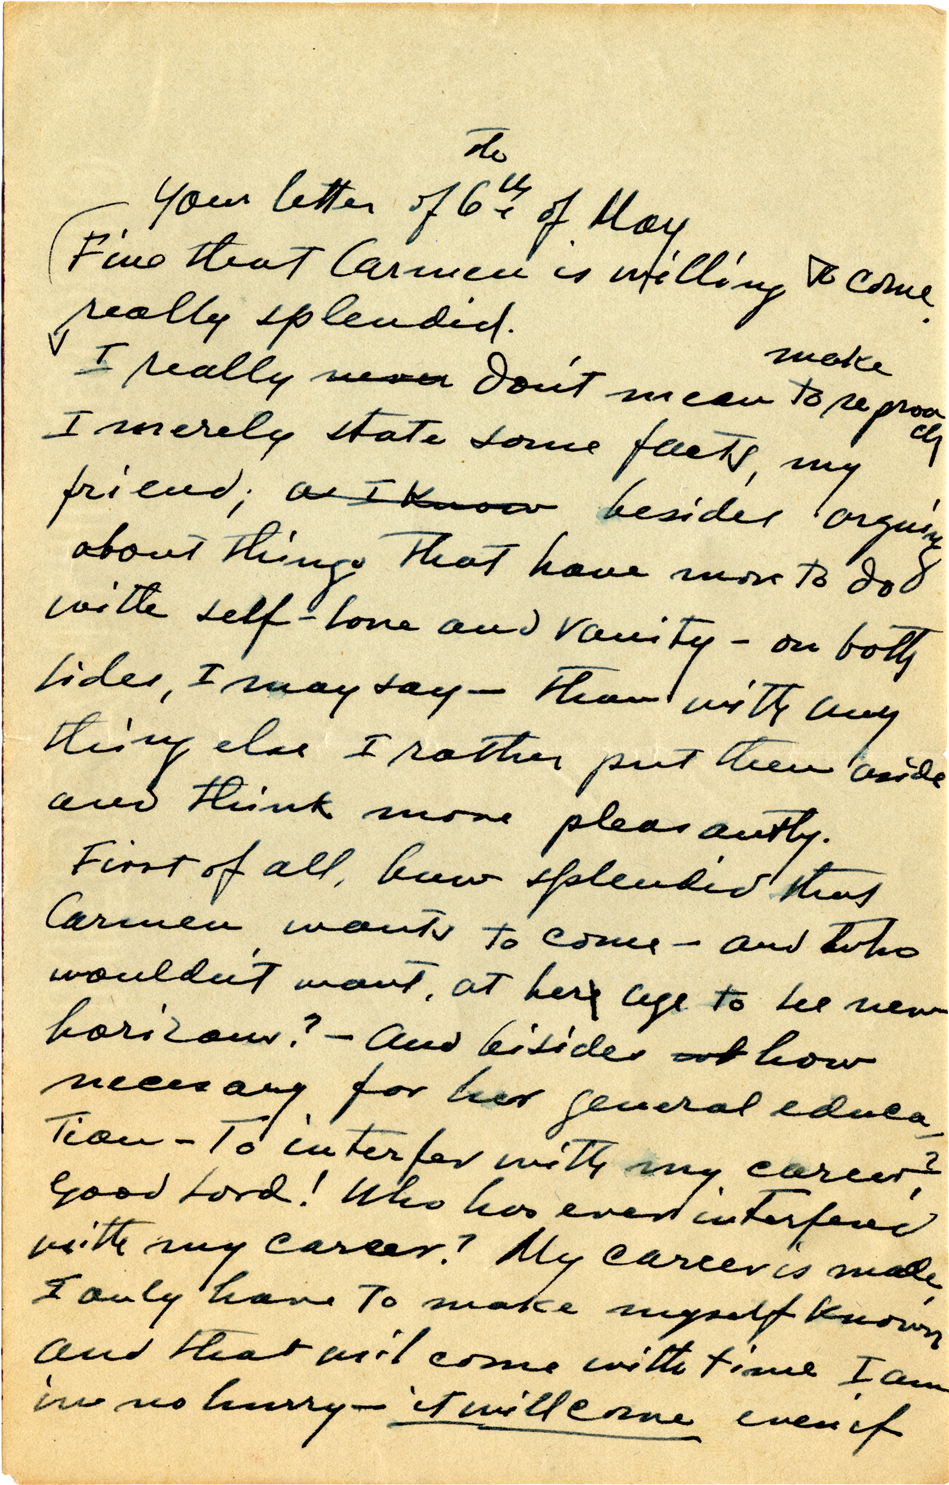 to
Your letter of 6th of May
Fine that Carmen is willing to come.
really splendid.
make
I really never don't mean to reproach
I merely state some facts, my
friend; as I know besides arguing
about things that have more to do
with self-love and vanity – on both
sides, I may say – than with any
thing else I rather put them aside
and think more pleasantly.
First of all, how splendid that
Carmen wants to come – and who
wouldn't want, at her age to see new
horizons? – And bisides how
necesary for her general educa-
tion – To interfer with my career?
Good Lord! Who has ever interfered
with my career? My career is made,
I only have to make myself known
and that wil come with time I am
in no hurry – it will come even if